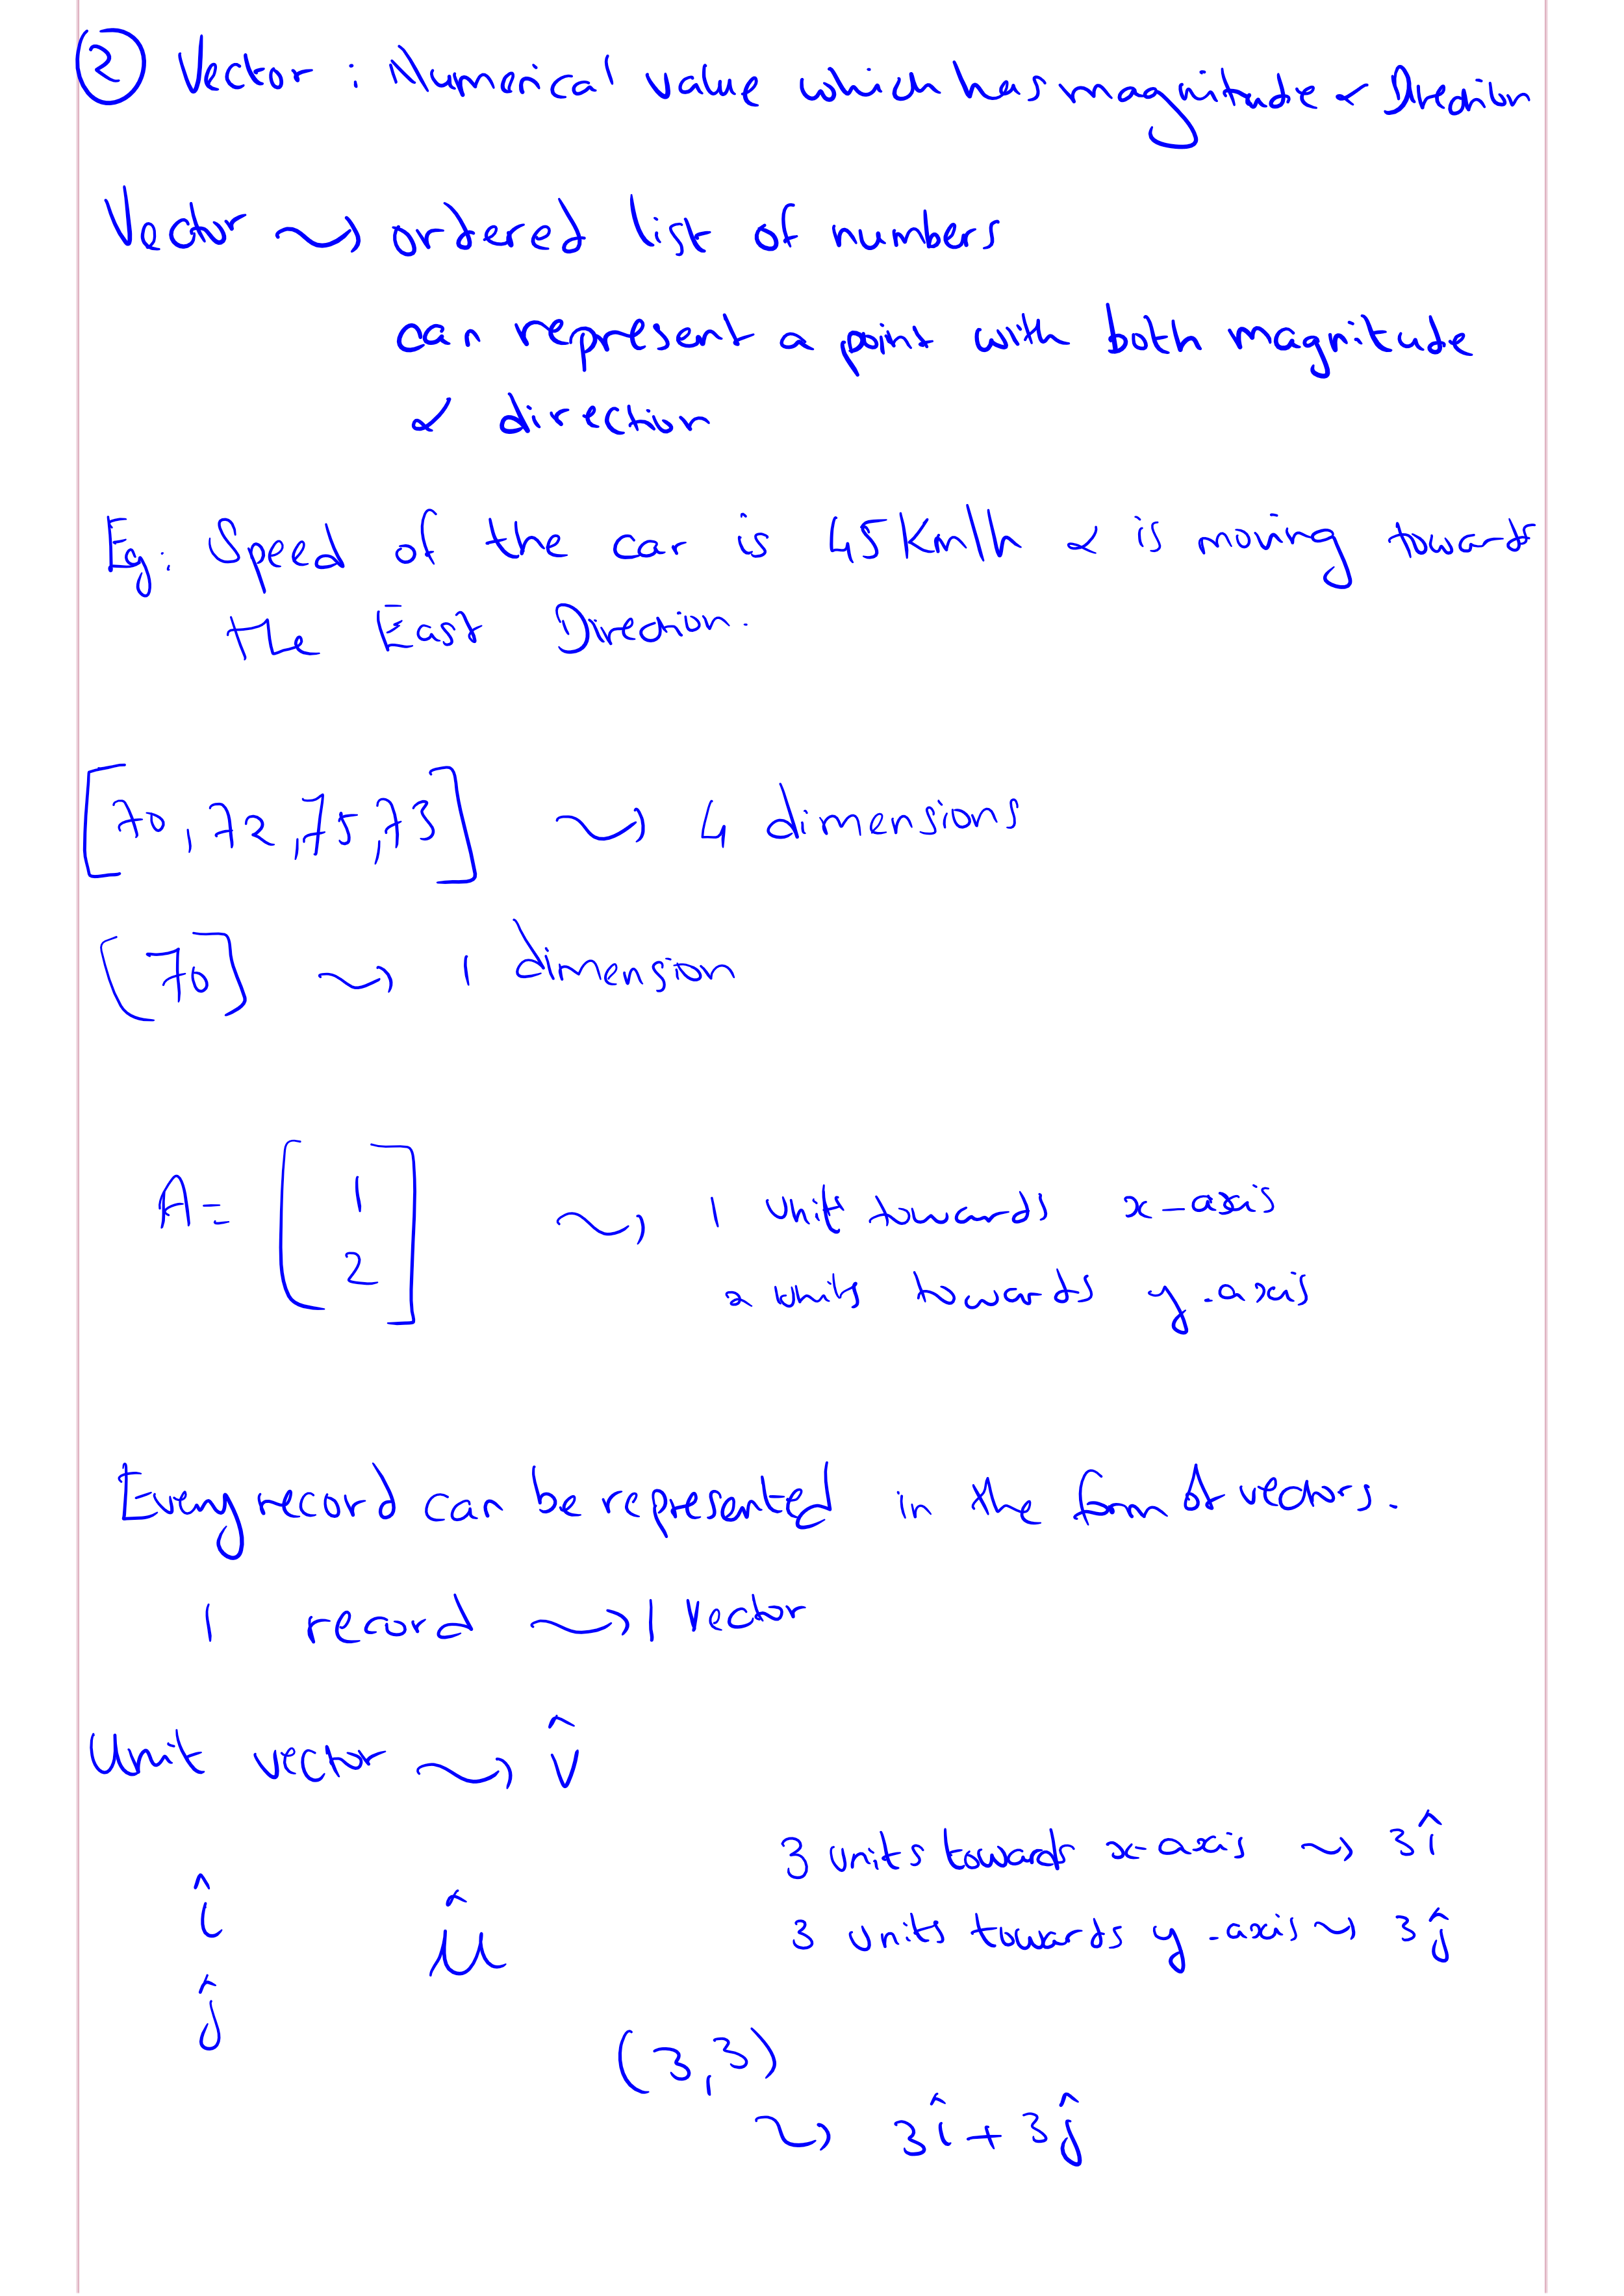 ② Vector : Numerical value which has magnitude & Direction
Vector ⇝ ordered list of numbers
can represent a point with both magnitude
& direction
Eg: Speed of the car is 45Km/h & is moving towards
the East Direction.
[70, 72, 75, 73] ⇝ 4 dimensions
[70] ⇝ 1 dimension
A = [1 ⇝ 1 unit towards x-axis
2] 2 units towards y-axis
Every record can be represented in the form of vectors.
1 record ⇝ 1 vector
Unit vector ⇝ v̂
3 units towards x-axis ⇝ 3î
î û 3 units towards y-axis ⇝ 3ĵ
ĵ
(3,3)
⇝ 3î + 3ĵ